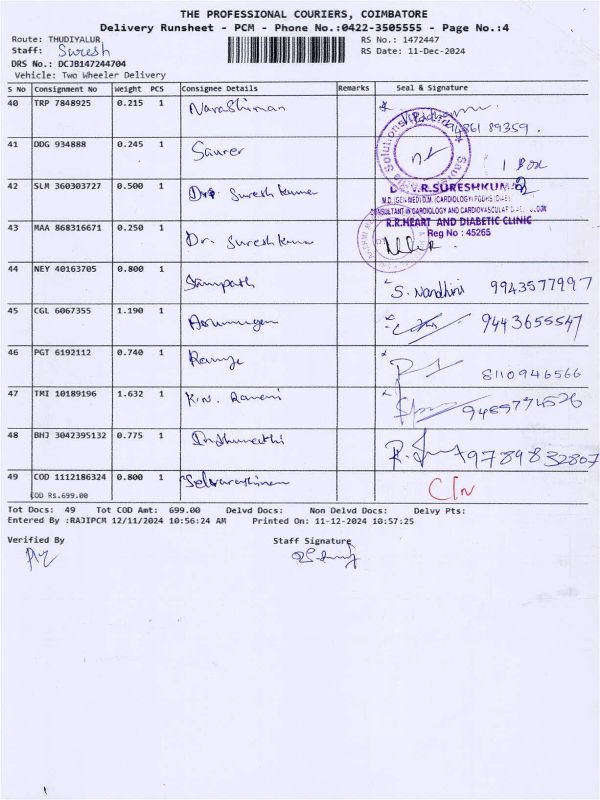 THE PROFESSIONAL COURIERS, COIMBATORE
Delivery Runsheet - PCM - Phone No.:0422-3505555 - Page No.:4
Route: THUDIYALUR RS No.: 1472447
Staff: Suresh RS Date: 11-Dec-2024
DRS No.: DCJB147244704
Vehicle: Two Wheeler Delivery
S No Consignment No Weight PCS Consignee Details Remarks Seal & Signature
40 TRP 7848925 0.215 1 Narashiman 94861 89359.
41 DDG 934888 0.245 1 Saurer 1 Box
42 SLM 360303727 0.500 1 Dr. Suresh Kumar
V.R.SURESHKUM
CONSULTANT IN CARDIOLOGY AND CARDIOVASCULAR
R.R.HEART AND DIABETIC CLINIC
Reg No : 45265
43 MAA 868316671 0.250 1 Dr. Suresh Kumar
44 NEY 40163705 0.800 1 Sampath S. Nandhini 9943577997
45 CGL 6067355 1.190 1 Arumugam 9443655547
46 PGT 6192112 0.740 1 8110946566
47 TMI 10189196 1.632 1 K.N. 9489774526
48 BHJ 3042395132 0.775 1 Indhumathi 9789832807
49 COD 1112186324 0.800 1 Selvarathinam C/N
COD RS.699.00
Tot Docs: 49 Tot COD Amt: 699.00 Delvd Docs: Non Delvd Docs: Delvy Pts:
Entered By :RAJIPCM 12/11/2024 10:56:24 AM Printed On: 11-12-2024 10:57:25
Verified By Staff Signature